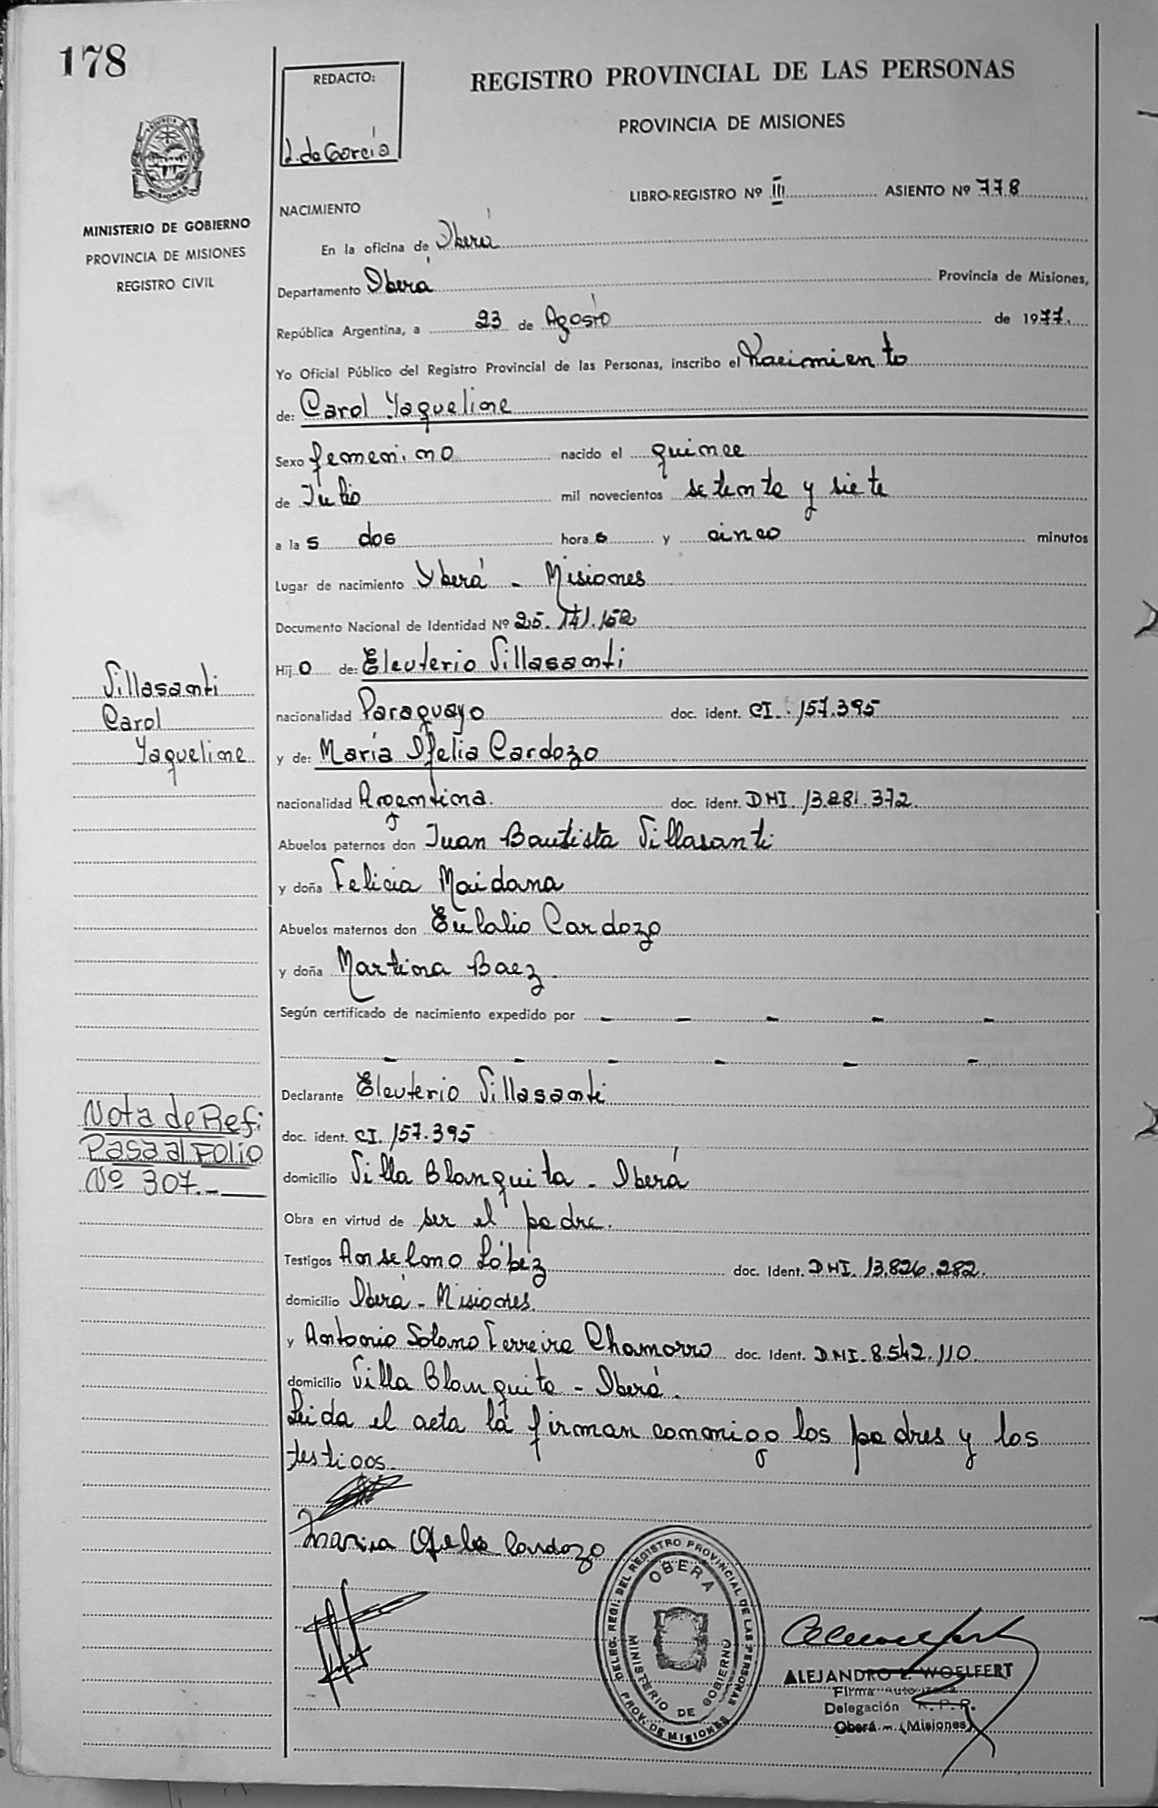 178
REDACTO:
J. de García
REGISTRO PROVINCIAL DE LAS PERSONAS
PROVINCIA DE MISIONES
MINISTERIO DE GOBIERNO
PROVINCIA DE MISIONES
REGISTRO CIVIL
LIBRO-REGISTRO Nº III ASIENTO Nº 778
NACIMIENTO
En la oficina de Oberá
Departamento Oberá Provincia de Misiones,
República Argentina, a 23 de Agosto de 1977.
Yo Oficial Público del Registro Provincial de las Personas, inscribo el Nacimiento
de: Carol Yaqueline
Sexo femenino nacido el quince
de Julio mil novecientos setenta y siete
a las dos horas y cinco minutos
Lugar de nacimiento Oberá - Misiones
Documento Nacional de Identidad Nº 25.741.152
Hijo de: Eleuterio Villasanti
nacionalidad Paraguayo doc. ident. CI. 157.395
y de: María Ofelia Cardozo
nacionalidad Argentina. doc. ident. DNI. 13.281.372.
Abuelos paternos don Juan Bautista Villasanti
y doña Felicia Maidana
Abuelos maternos don Eulalio Cardozo
y doña Martina Baez.
Según certificado de nacimiento expedido por - - - - -
- - - - - -
Declarante Eleuterio Villasanti
doc. ident. CI. 157.395
domicilio Villa Blanquita - Oberá
Obra en virtud de ser el padre.
Testigos Anselmo López doc. Ident. DNI. 13.826.282.
domicilio Oberá - Misiones.
y Antonio Solano Ferreira Chamorro doc. Ident. DNI. 8.542.110.
domicilio Villa Blanquita - Oberá.
Leida el acta la firman conmigo los padres y los
testigos.
Maria Ofelia Cardozo
Villasanti
Carol
Yaqueline
Nota de Ref:
Pasa al Folio
Nº 307.-
DELEG. REGI. DEL REGISTRO PROVINCIAL DE LAS PERSONAS
PROV. DE MISIONES
OBERA
MINISTERIO DE GOBIERNO
ALEJANDRO E. WOELFERT
Firma Autorizada
Delegación R. P. P.
Oberá - (Misiones)